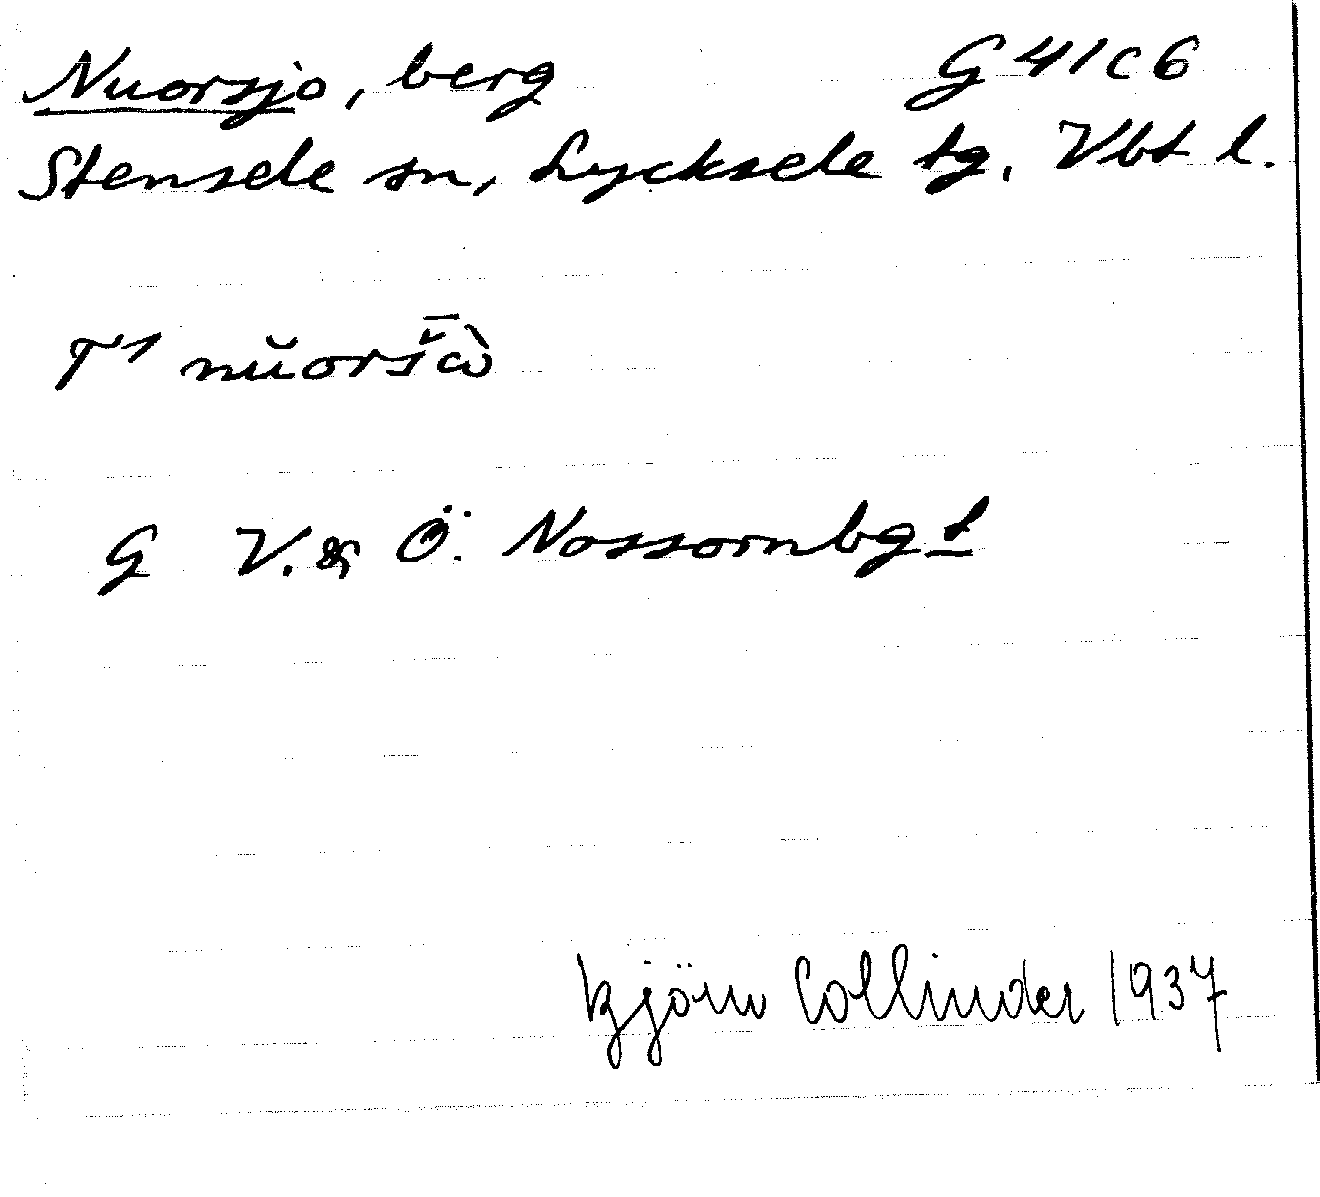 Nuorsjo, berg G 41 c 6
Stensele sn, Lycksele tg. Vbt l.
T1 nŭorš̄ὼ
G V. & Ö. Nossornbgt
Björn Collinder 1937